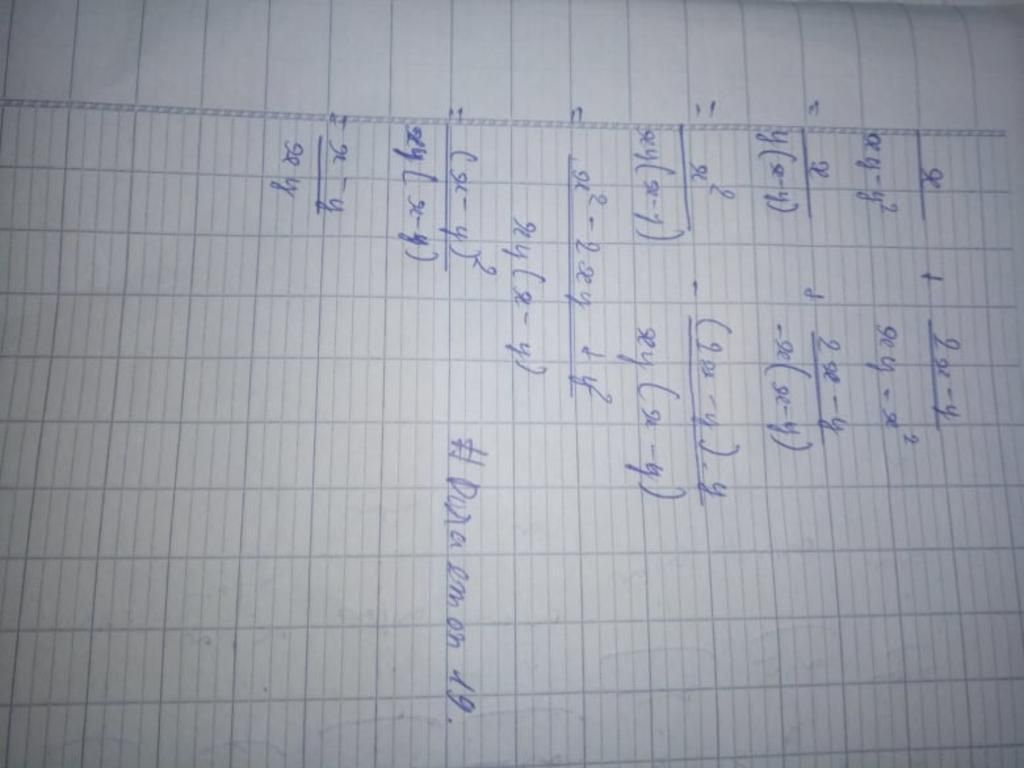 x/(xy-y²) + (2x-y)/(xy-x²)
= x/(y(x-y)) + (2x-y)/(-x(x-y))
= x²/(xy(x-y)) - ((2x-y).y)/(xy(x-y))
= (x²-2xy+y²)/(xy(x-y))
= (x-y)²/(xy(x-y))
= (x-y)/(xy)